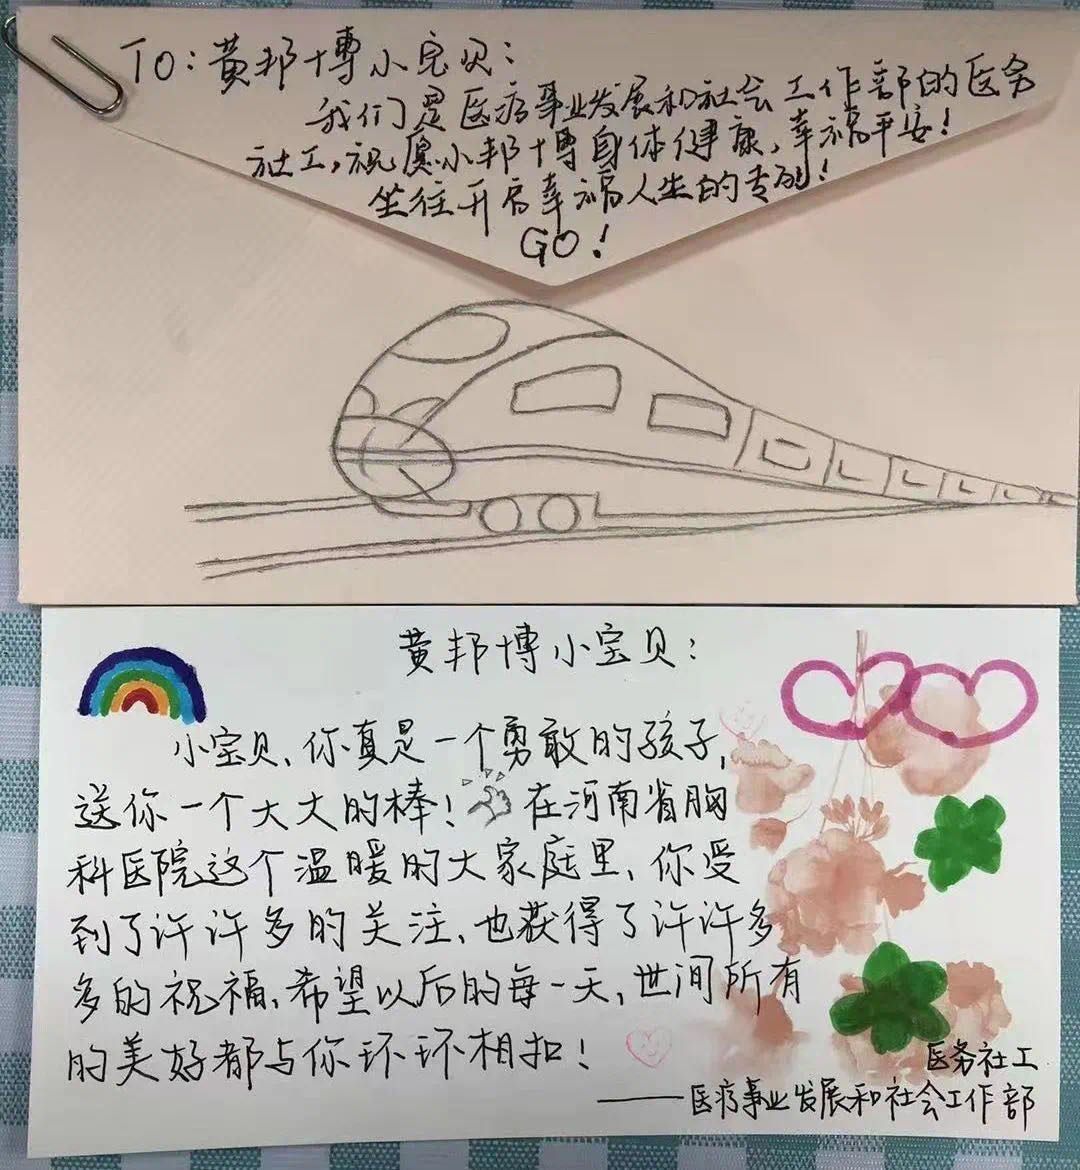 TO:黄邦博小宝贝:
我们是医疗事业发展和社会工作部的医务
社工,祝愿小邦博身体健康,幸福平安!
坐往开启幸福人生的专列!
GO!
黄邦博小宝贝:
小宝贝、你真是一个勇敢的孩子,
送你一个大大的棒!在河南省胸
科医院这个温暖的大家庭里、你受
到了许许多多的关注、也获得了许许多
多的祝福,希望以后的每一天,世间所有
的美好都与你环环相扣!
医务社工
——医疗事业发展和社会工作部